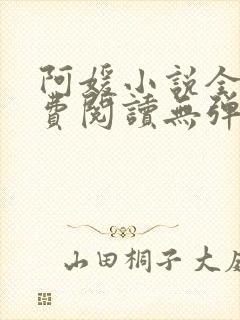 阿媛小説全
費閱讀無彈
山田桐子大庭